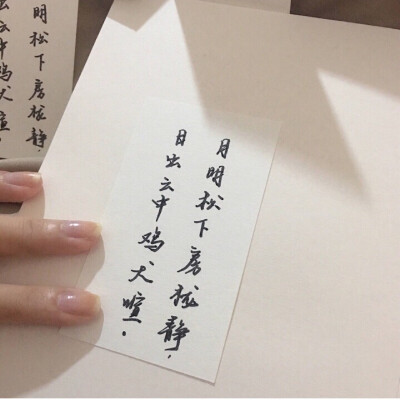 明松下房栊静，
出云中鸡犬喧.
月明松下房栊静，
日出云中鸡犬喧.